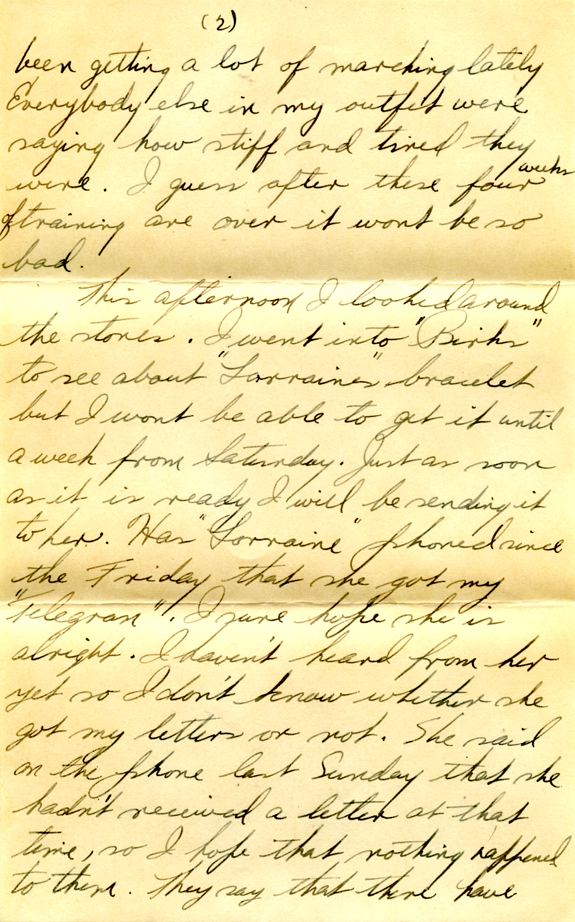 (2)
been getting a lot of marching lately
Everybody else in my outfit were
saying how stiff and tired they
were. I guess after these four weeks
of training are over it wont be so
bad.
This afternoon I looked around
the stores. I went into "Birks"
to see about "Lorraine's" bracelet
but I wont be able to get it until
a week from Saturday. Just as soon
as it is ready I will be sending it
to her. Has "Lorraine" phoned since
the Friday that she got my
"Telegram". I sure hope she is
alright. I haven't heard from her
yet so I don't know whether she
got my letters or not. She said
on the phone last Sunday that she
hadn't received a letter at that
time, so I hope that nothing happened
to them. They say that there have